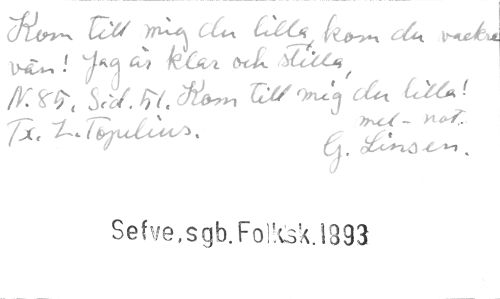 Kom till mig du lilla, kom du vackra
vän! Jag är klar och stilla,
N. 85, Sid. 51. Kom till mig du lilla!
mel-not.
Tx. Z. Topelius.
G. Linsen.
Sefve, sgb. Folksk. 1893